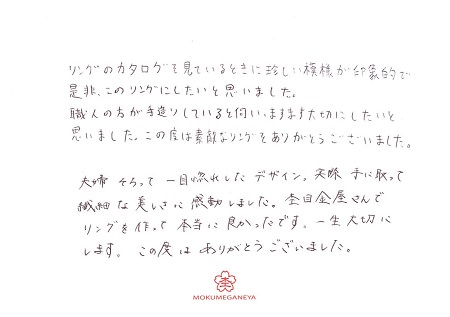 リングのカタログを見ているときに珍しい模様が印象的で
是非、このリングにしたいと思いました。
職人の方が手造りしていると伺い、ますます大切にしたいと
思いました。この度は素敵なリングをありがとうございました。
夫婦そろって一目惚れしたデザイン。実際手に取って
繊細な美しさに感動しました。杢目金屋さんで
リングを作って本当に良かったです。一生大切に
します。この度はありがとうございました。
杢
MOKUMEGANEYA